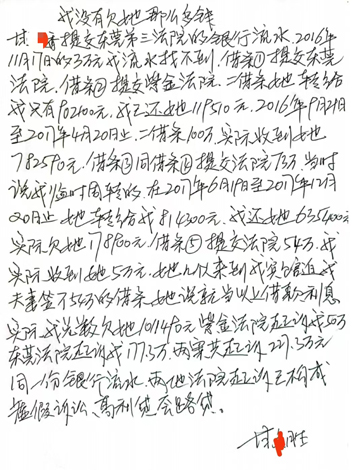 我没有欠她那么多钱
提交东莞第三法院的银行流水,2016年
11月17日的3万我流水找不到,借条①提交东莞
法院,借条②提交紫金法院,二借条她转给
我只有902100元,我已还她119510元,2016年9月21日
至2017年4月20日止,二借条100万,实际收到她
782590元,借条③同借条④提交法院73万当时
说我临时周转的,在2017年6月19日至2017年12月
20日止她转给我814300元,我还她635400元
实际欠她178900元,借条⑤提交法院54万,我
实际收到她5万元,她几次来到我家逼迫我
夫妻签下54万的借条她说就当以上借款利息
实际我总数欠她1011490元紫金法院起诉我50万
东莞法院起诉我177.3万,两案共起诉227.3万元
同一份银行流水,两地法院起诉已构成
虚假诉讼、高利贷、套路贷。
胜